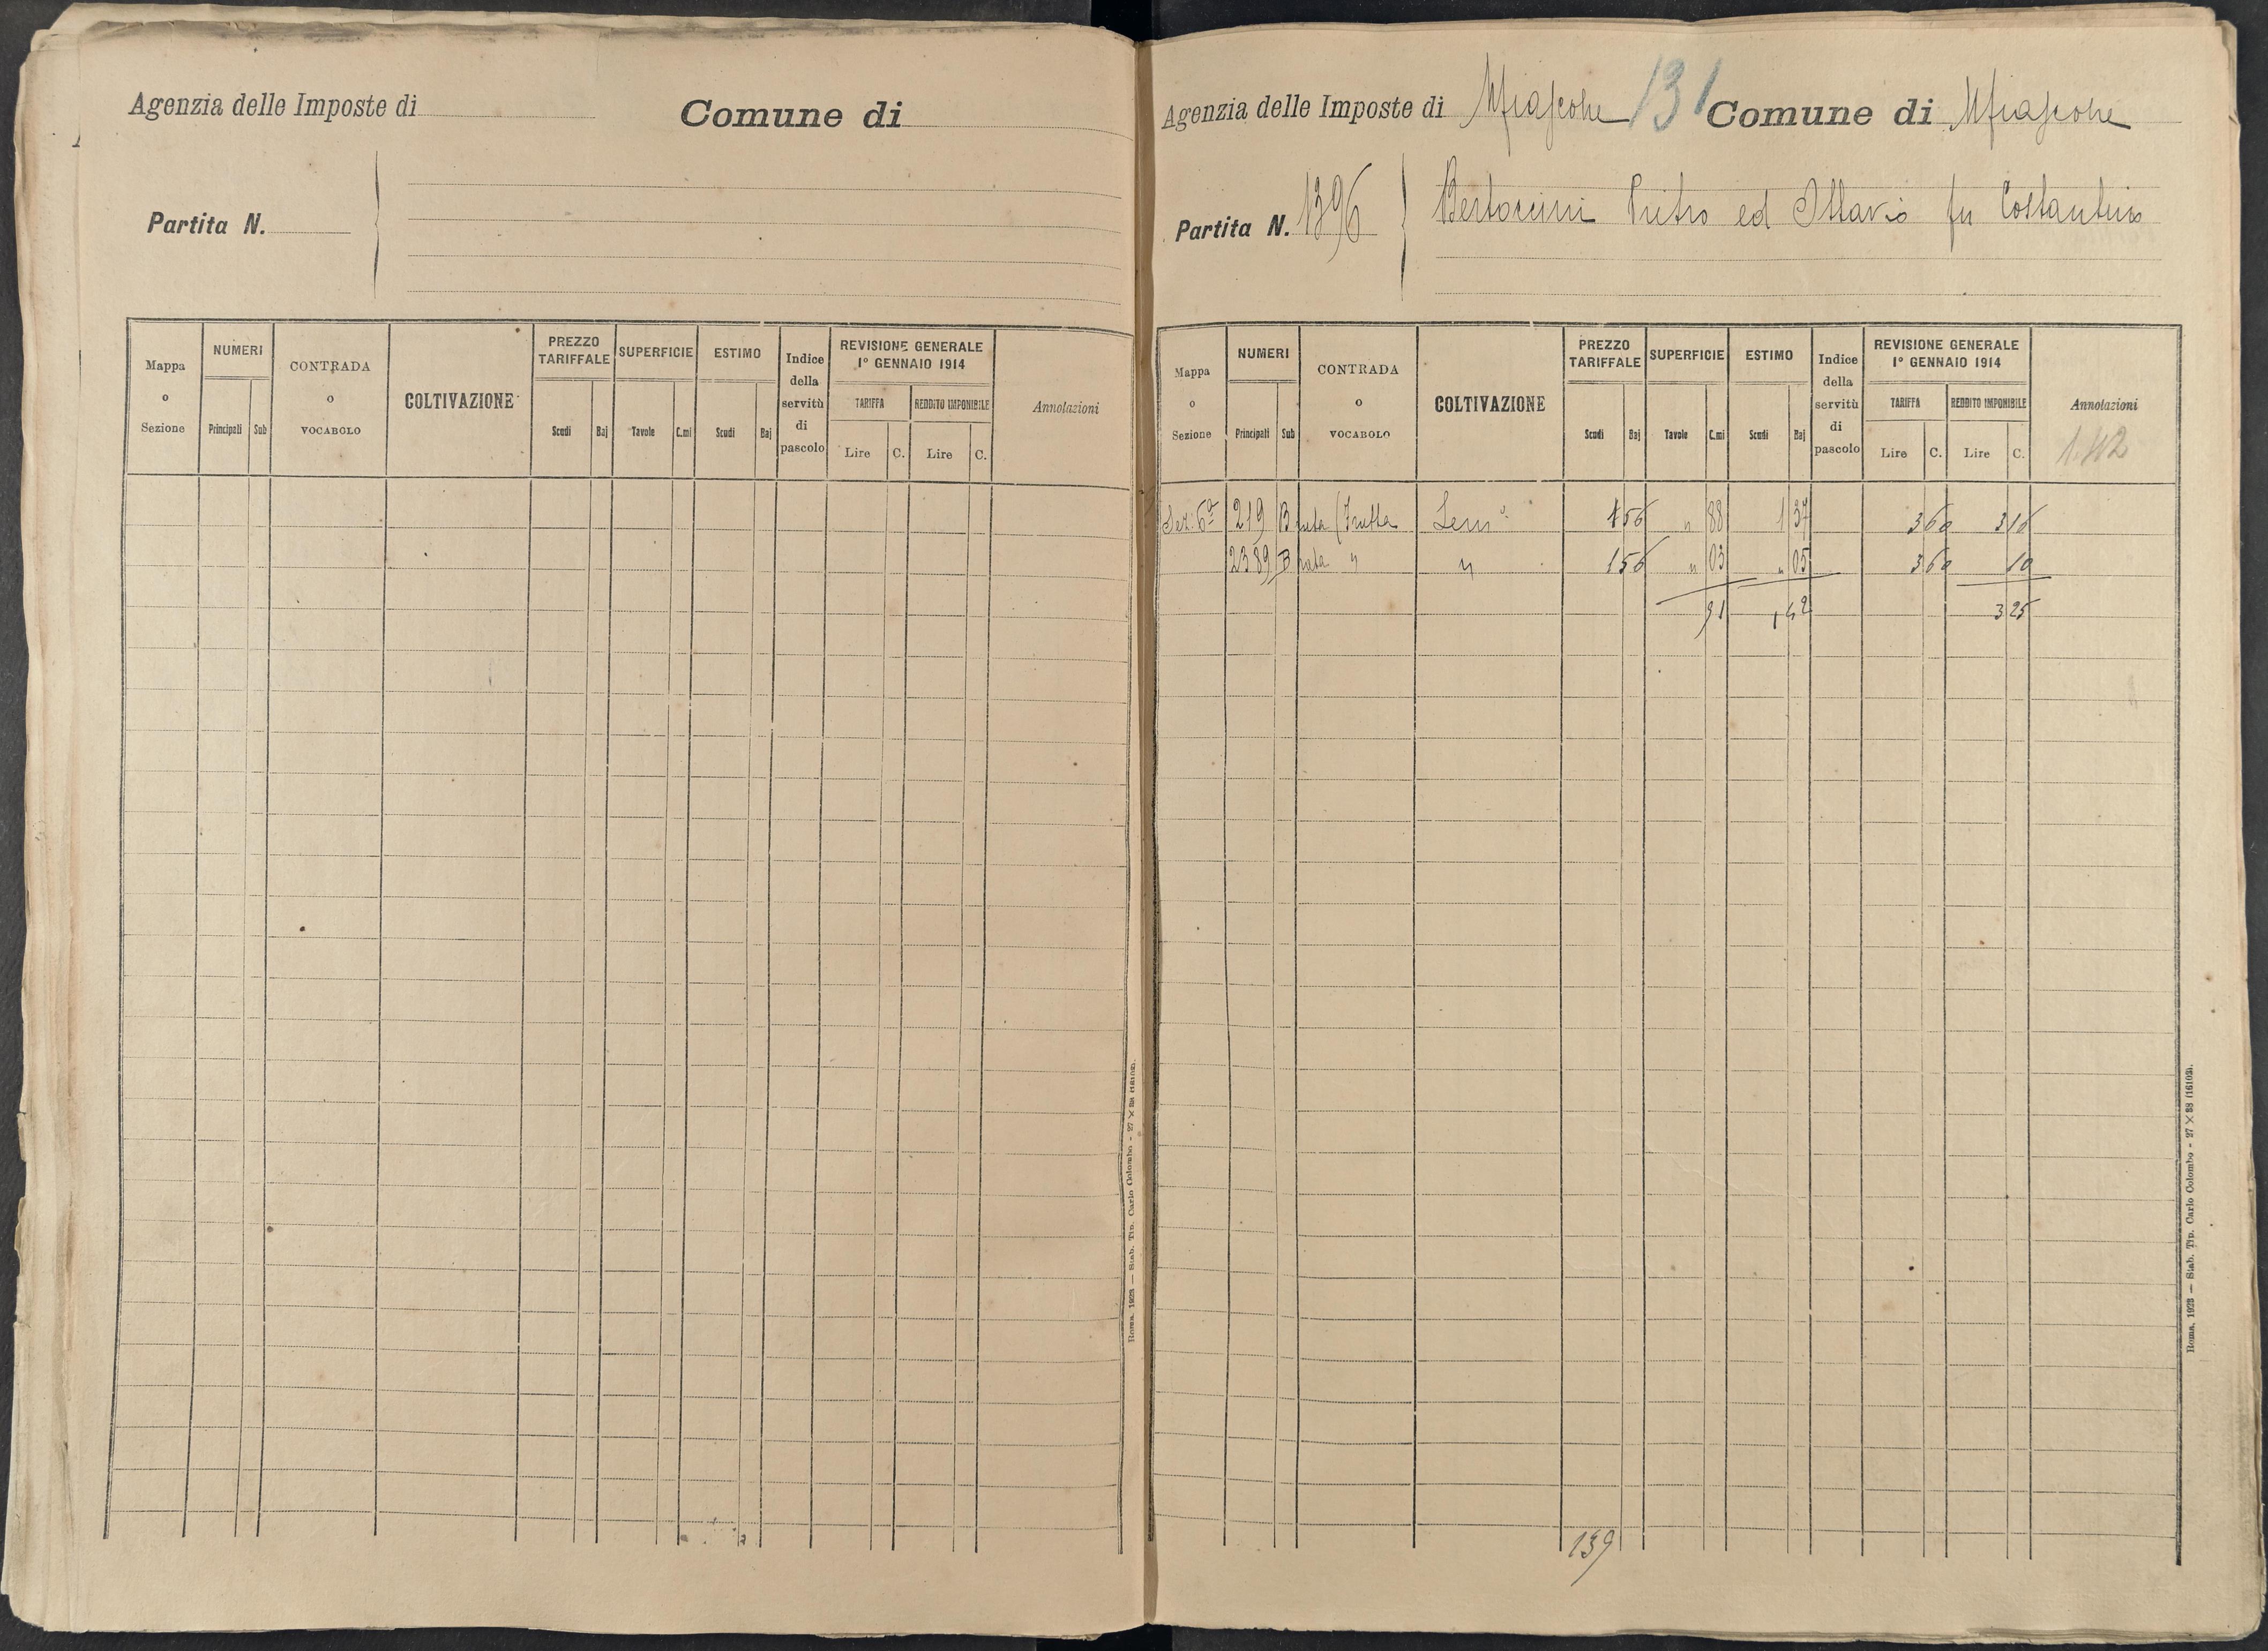 Agenzia delle Imposte di
Comune di
Partita N.
Mappa o Sezione
NUMERI
Principali
Sub
CONTRADA o VOCABOLO
COLTIVAZIONE
PREZZO TARIFFALE
Scudi
Baj
SUPERFICIE
Tavole
C.mi
ESTIMO
Scudi
Baj
Indice della servitù di pascolo
REVISIONE GENERALE
1º GENNAIO 1914
TARIFFA
REDDITO IMPONIBILE
Lire
C.
Lire
C.
Annotazioni
Roma, 1923 — Stab. Tip. Carlo Colombo - 27 × 38 (16102).
Agenzia delle Imposte di
131
Comune di
Partita N. 1396
Pietro ed Ottavio fu Costantino
Mappa o Sezione
NUMERI
Principali
Sub
CONTRADA o VOCABOLO
COLTIVAZIONE
PREZZO TARIFFALE
Scudi
Baj
SUPERFICIE
Tavole
C.mi
ESTIMO
Scudi
Baj
Indice della servitù di pascolo
REVISIONE GENERALE
1º GENNAIO 1914
TARIFFA
REDDITO IMPONIBILE
Lire
C.
Lire
C.
Annotazioni
1.42
Sez: 6ª 219 Sem 1 56 " 88 1 37 3 60 3 16
2389 " " 1 56 " 03 " 05 3 60 10
91 1 42 3 25
139
Roma, 1923 — Stab. Tip. Carlo Colombo - 27 × 38 (16102).